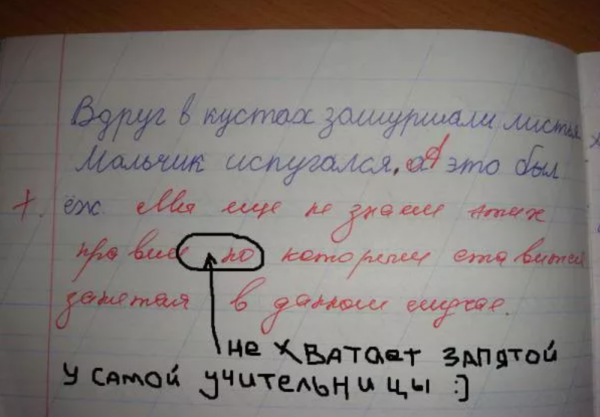 Вдруг в кустах зашуршали листья
Мальчик испугался. А это был
+. ёж. Мы еще не знаем этих
правил по которым ставится
запятая в данном случае.
не хватает запятой
у самой учительницы :)